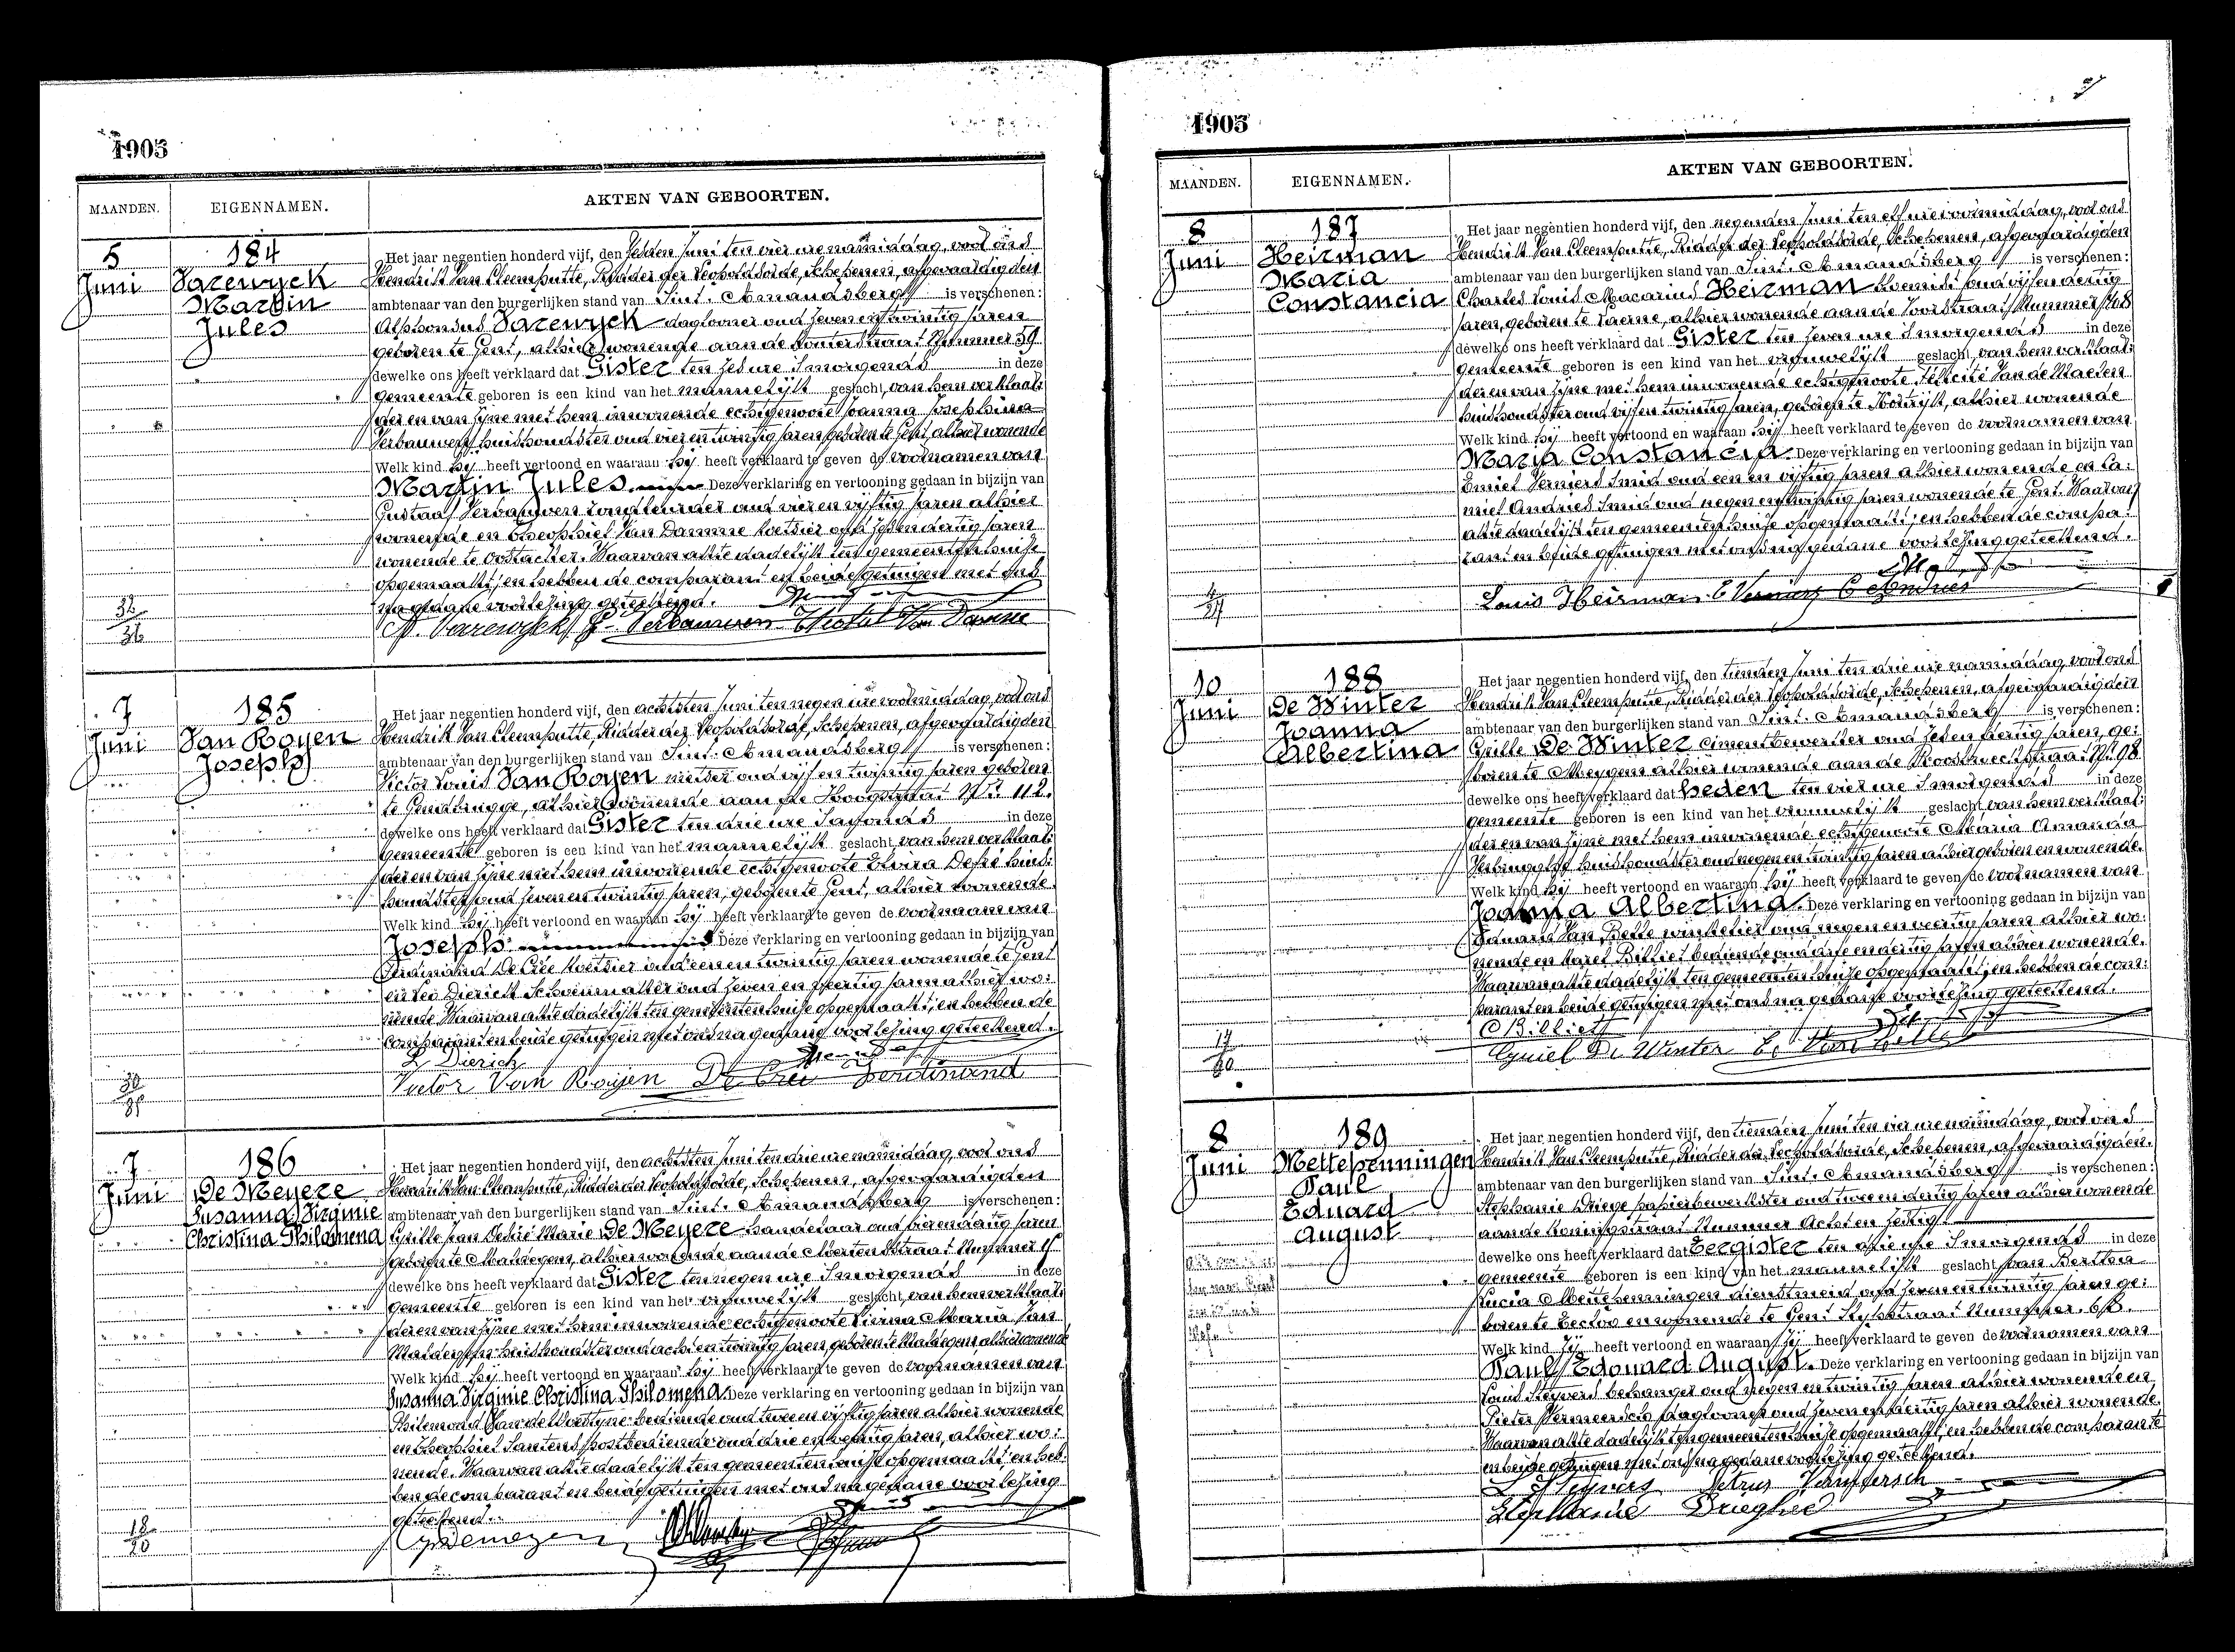 1905
MAANDEN.
EIGENNAMEN.
AKTEN VAN GEBOORTEN.
5
Juni
184
Varewyck
Martin
Jules
Het jaar negentien honderd vijf, den zesden Juni ten vier ure namiddag, voor ons
Hendrik Van Cleemputte, Ridder der Leopoldsorde, Schepenen, afgevaardigden
ambtenaar van den burgerlijken stand van Sint-Amandsberg is verschenen:
Alphonsus Varewyck daglooner oud zeven en twintig jaren
geboren te Gent, alhier wonende aan de Nummer 59
dewelke ons heeft verklaard dat Gister ten zes ure 's morgends in deze
gemeente geboren is een kind van het mannelijk geslacht, van hem verklaar:
der en van zijne met hem inwonende echtgenoote Joanna Josephina
Verbauwen, huishoudster oud vier en twintig jaren geboren te Gent alhier wonende
Welk kind hij heeft vertoond en waaraan hij heeft verklaard te geven de voornamen van
Martin Jules. Deze verklaring en vertooning gedaan in bijzijn van
Gustaaf Verbauwen oud vier en vijftig jaren alhier
wonende en Theophiel Van Damme koetsier oud zes en dertig jaren
wonende te Oostacker. Waarvan akte dadelijk ten gemeentenhuize
opgemaakt; en hebben de comparant en beide getuigen met ons
na gedane voorlezing geteekend.
A. Varewyck G. Verbauwen Theofiel Van Damme
32
36
7
Juni
185
Van Royen
Joseph
Het jaar negentien honderd vijf, den achtsten Juni ten negen ure voormiddag, voor ons
Hendrik Van Cleemputte, Ridder der Leopoldsorde, Schepenen, afgevaardigden
ambtenaar van den burgerlijken stand van Sint-Amandsberg is verschenen:
Victor Louis Van Royen metser oud vijf en twintig jaren geboren
te Gendbrugge, alhier wonende aan de Hoogstraat Nr. 112.
dewelke ons heeft verklaard dat Gister ten drie ure in deze
gemeente geboren is een kind van het mannelijk geslacht, van hem verklaar:
der en van zijne met hem inwonende echtgenoote Elvira huis:
houdster oud zeven en twintig jaren, geboren te Gent, alhier wonende.
Welk kind hij heeft vertoond en waaraan hij heeft verklaard te geven de voornaam van
Joseph Deze verklaring en vertooning gedaan in bijzijn van
Ferdinand De Crée koetsier oud een en twintig jaren wonende te Gent
en Leo Dierick Schoenmaker oud zeven en veertig jaren alhier wo:
nende. Waarvan akte dadelijk ten gemeentenhuize opgemaakt; en hebben de
comparant en beide getuigen met ons na gedane voorlezing geteekend.
L Dierick
Victor Van Royen De Crée Ferdinand
7
Juni
186
De Meyere
Susanna Virginie
Christina Philomena
Het jaar negentien honderd vijf, den achtsten Juni ten drie ure namiddag, voor ons
Hendrik Van Cleemputte, Ridder der Leopoldsorde, Schepenen, afgevaardigden
ambtenaar van den burgerlijken stand van Sint-Amandsberg is verschenen:
Cyrille Jan Marie De Meyere handelaar oud dertig jaren
geboren te Maldegem, alhier wonende aan de Nummer
dewelke ons heeft verklaard dat Gister ten negen ure 's morgends in deze
gemeente geboren is een kind van het vrouwelijk geslacht, van hem verklaar:
der en van zijne met hem inwonende echtgenoote Maria Van
huishoudster oud acht en twintig jaren, geboren te Maldegem alhier wonende
Welk kind hij heeft vertoond en waaraan hij heeft verklaard te geven de voornamen van
Susanna Virginie Christina Philomena. Deze verklaring en vertooning gedaan in bijzijn van
Philemond bediende oud twee en vijftig jaren alhier wonende
en Theophiel Santens postbediende oud drie en veertig jaren, alhier wo:
nende. Waarvan akte dadelijk ten gemeentenhuize opgemaakt; en heb:
ben de comparant en beide getuigen met ons na gedane voorlezing
geteekend.
18
20
1905
MAANDEN.
EIGENNAMEN.
AKTEN VAN GEBOORTEN.
8
Juni
187
Heirman
Maria
Constancia
Het jaar negentien honderd vijf, den negenden Juni ten elf ure voormiddag, voor ons
Hendrik Van Cleemputte, Ridder der Leopoldsorde, Schepenen, afgevaardigden
ambtenaar van den burgerlijken stand van Sint-Amandsberg is verschenen:
Charles Louis Macarius Heirman bloemist oud vijf en dertig
jaren, geboren te Laerne, alhier wonende aan de Nummer
dewelke ons heeft verklaard dat Gister ten zeven ure 's morgends in deze
gemeente geboren is een kind van het vrouwelijk geslacht, van hem verklaar:
der en van zijne met hem inwonende echtgenoote Félicité Van de
huishoudster oud vijf en twintig jaren, geboren te Kortrijk, alhier wonende
Welk kind hij heeft vertoond en waaraan hij heeft verklaard te geven de voornamen van
Maria Constancia. Deze verklaring en vertooning gedaan in bijzijn van
Emiel Verniers Smid oud een en vijftig jaren alhier wonende en Ca:
miel Andries Smid oud negen en twintig jaren wonende te Gent. Waarvan
akte dadelijk ten gemeentenhuize opgemaakt; en hebben de compa:
rant en beide getuigen met ons na gedane voorlezing geteekend.
Louis Heirman E Verniers C Andries
10
Juni
188
De Winter
Joanna
Albertina
Het jaar negentien honderd vijf, den tienden Juni ten drie ure namiddag, voor ons
Hendrik Van Cleemputte, Ridder der Leopoldsorde, Schepenen, afgevaardigden
ambtenaar van den burgerlijken stand van Sint-Amandsberg is verschenen:
Cyrille De Winter cimentbewerker oud zes en dertig jaren, ge:
boren te Meygem alhier wonende aan de Nr. 98
dewelke ons heeft verklaard dat heden ten vier ure 's morgends in deze
gemeente geboren is een kind van het vrouwelijk geslacht van hem verklaar:
der en van zijne met hem inwonende echtgenoote Maria Amanda
huishoudster oud negen en twintig jaren alhier geboren en wonende.
Welk kind hij heeft vertoond en waaraan hij heeft verklaard te geven de voornamen van
Joanna Albertina. Deze verklaring en vertooning gedaan in bijzijn van
Eduard Van Belle winkelier oud negen en veertig jaren alhier wo:
nende en Karel Billiet bediende oud drie en dertig jaren alhier wonende.
Waarvan akte dadelijk ten gemeentenhuize opgemaakt; en hebben de com:
parant en beide getuigen met ons na gedane voorlezing geteekend.
C Billiet
Cyriel De Winter E. Van Belle
8
Juni
189
Mettepenningen
Paul
Eduard
August
Het jaar negentien honderd vijf, den tienden Juni ten vier ure namiddag, voor ons
Hendrik Van Cleemputte, Ridder der Leopoldsorde, Schepenen, afgevaardigden
ambtenaar van den burgerlijken stand van Sint-Amandsberg is verschenen:
Stephanie papierbewerkster oud twee en dertig jaren alhier wonende
aan de Koningstraat Nummer Acht en zestig
dewelke ons heeft verklaard dat Eergister ten drie ure 's morgends in deze
gemeente geboren is een kind van het mannelijk geslacht van Bertha
Lucia Mettepenningen dienstmeid oud zeven en twintig jaren ge:
boren te Eecloo en wonende te Gent Nummer
Welk kind zij heeft vertoond en waaraan zij heeft verklaard te geven de voornamen van
Paul Edouard August. Deze verklaring en vertooning gedaan in bijzijn van
Louis Steyvers behanger oud negen en twintig jaren alhier wonende en
Pieter Vermeersch daglooner oud zeven en dertig jaren alhier wonende.
Waarvan akte dadelijk ten gemeentenhuize opgemaakt; en hebben de comparante
en beide getuigen met ons na gedane voorlezing geteekend.
L Steyvers Petrus
Stephanie